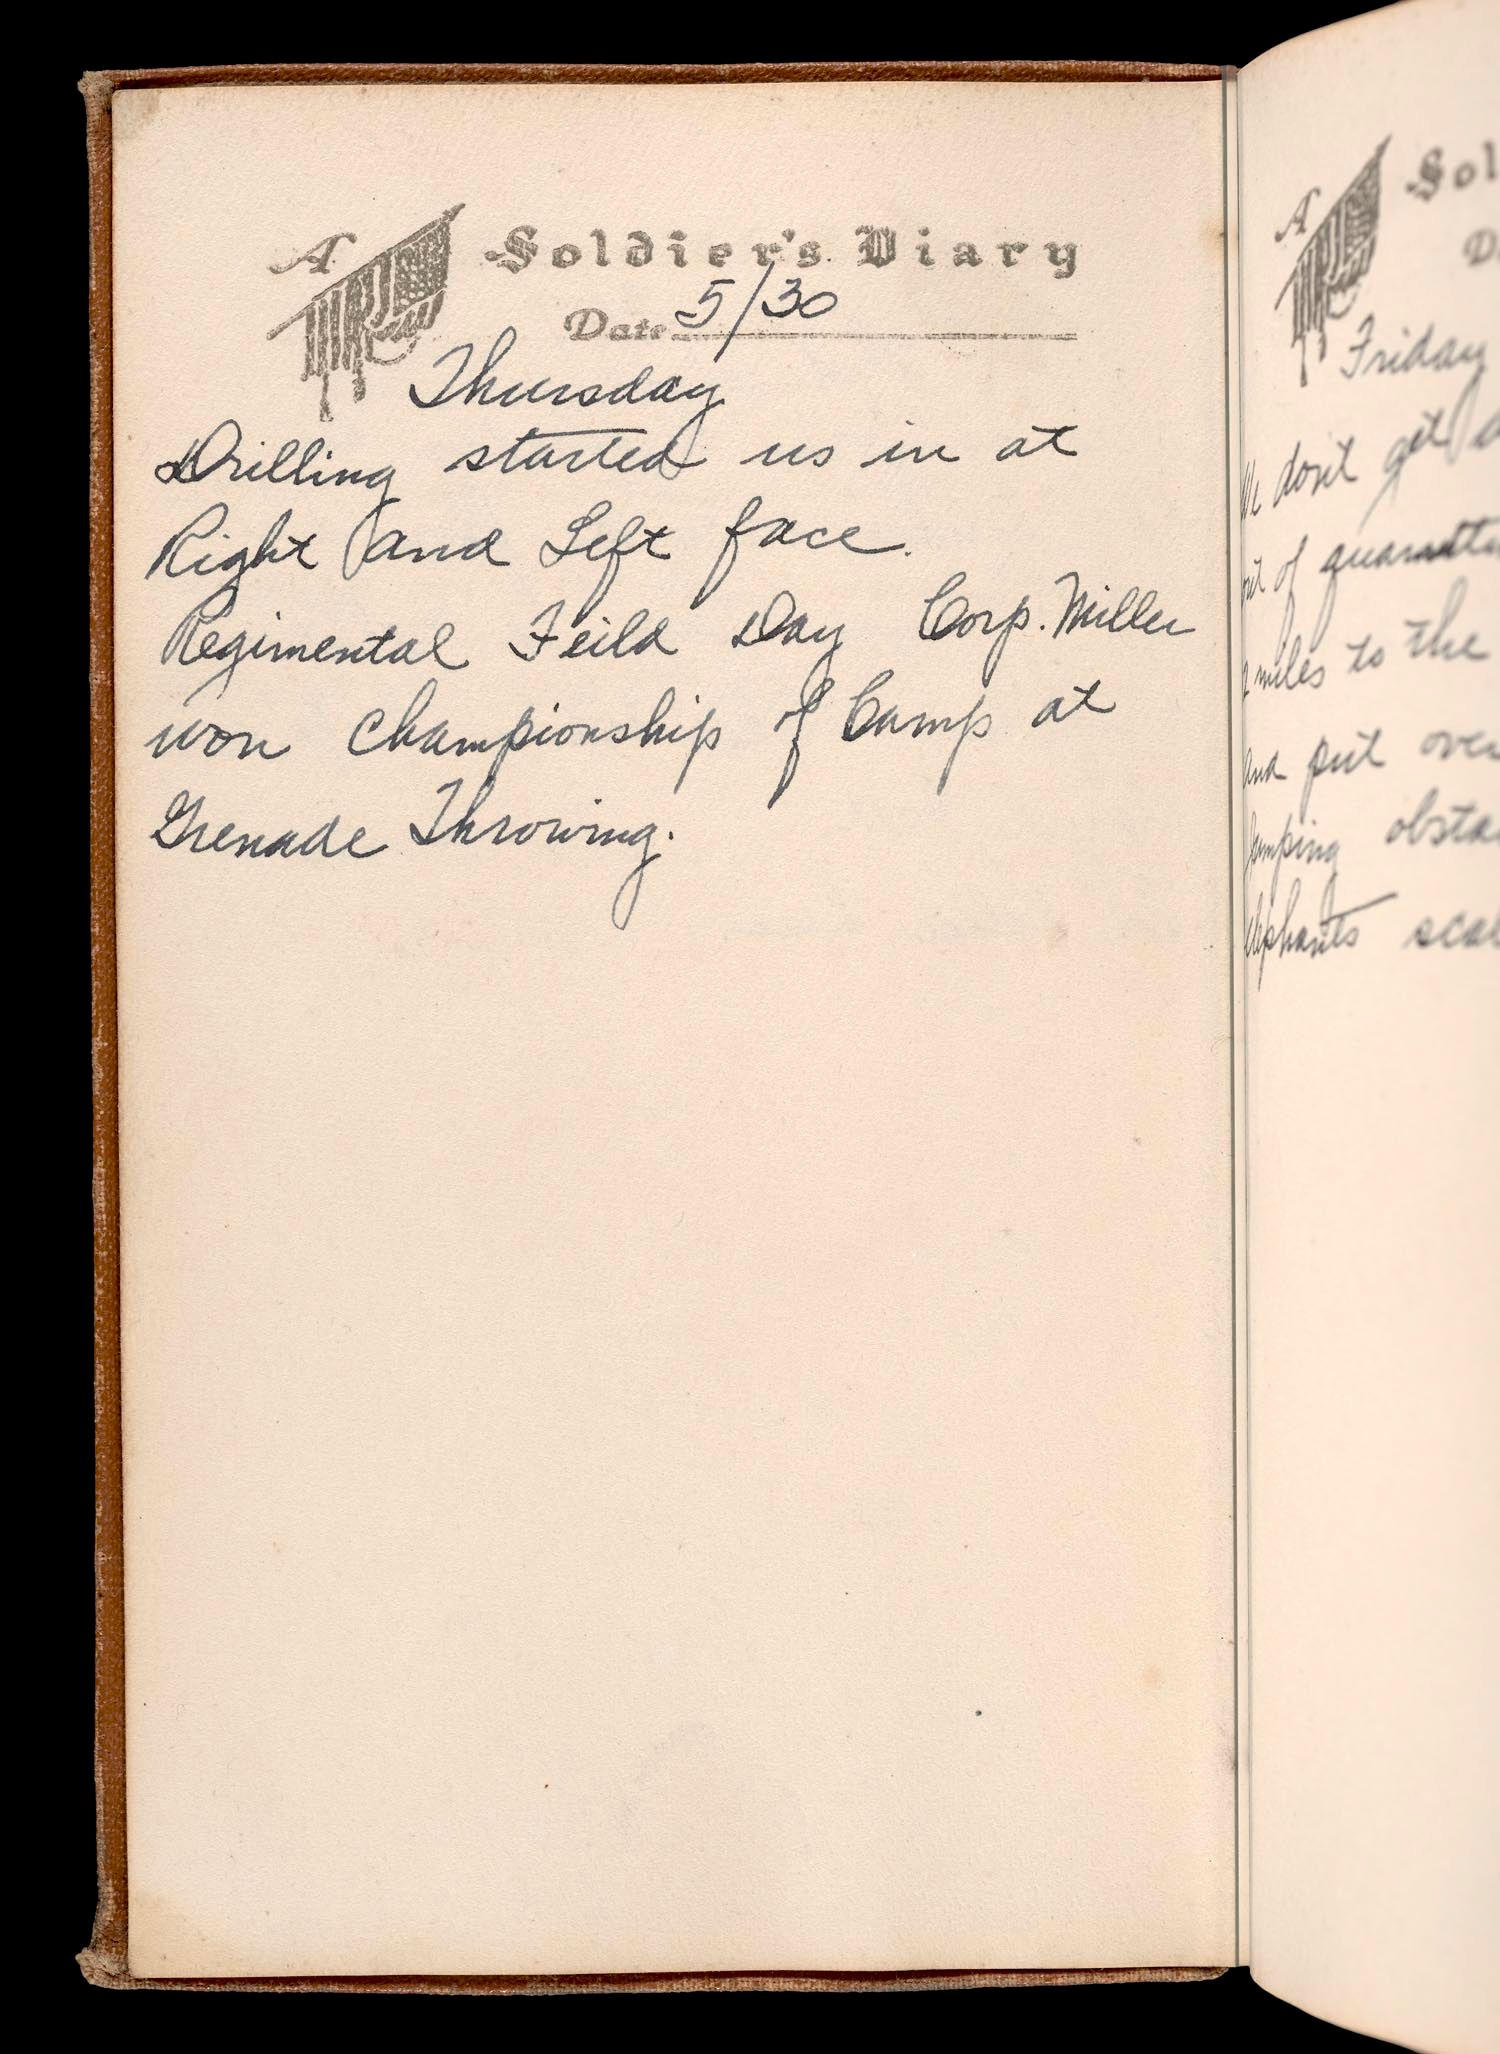 A Soldier's Diary
Date 5/30
Thursday
Drilling started us in at
Right and Left face.
Regimental Feild Day Corp. Miller
won championship of Camp at
Grenade Throwing.
A Sol
D
Friday
We don't get
of
miles to the
and put over
jumping
elephants